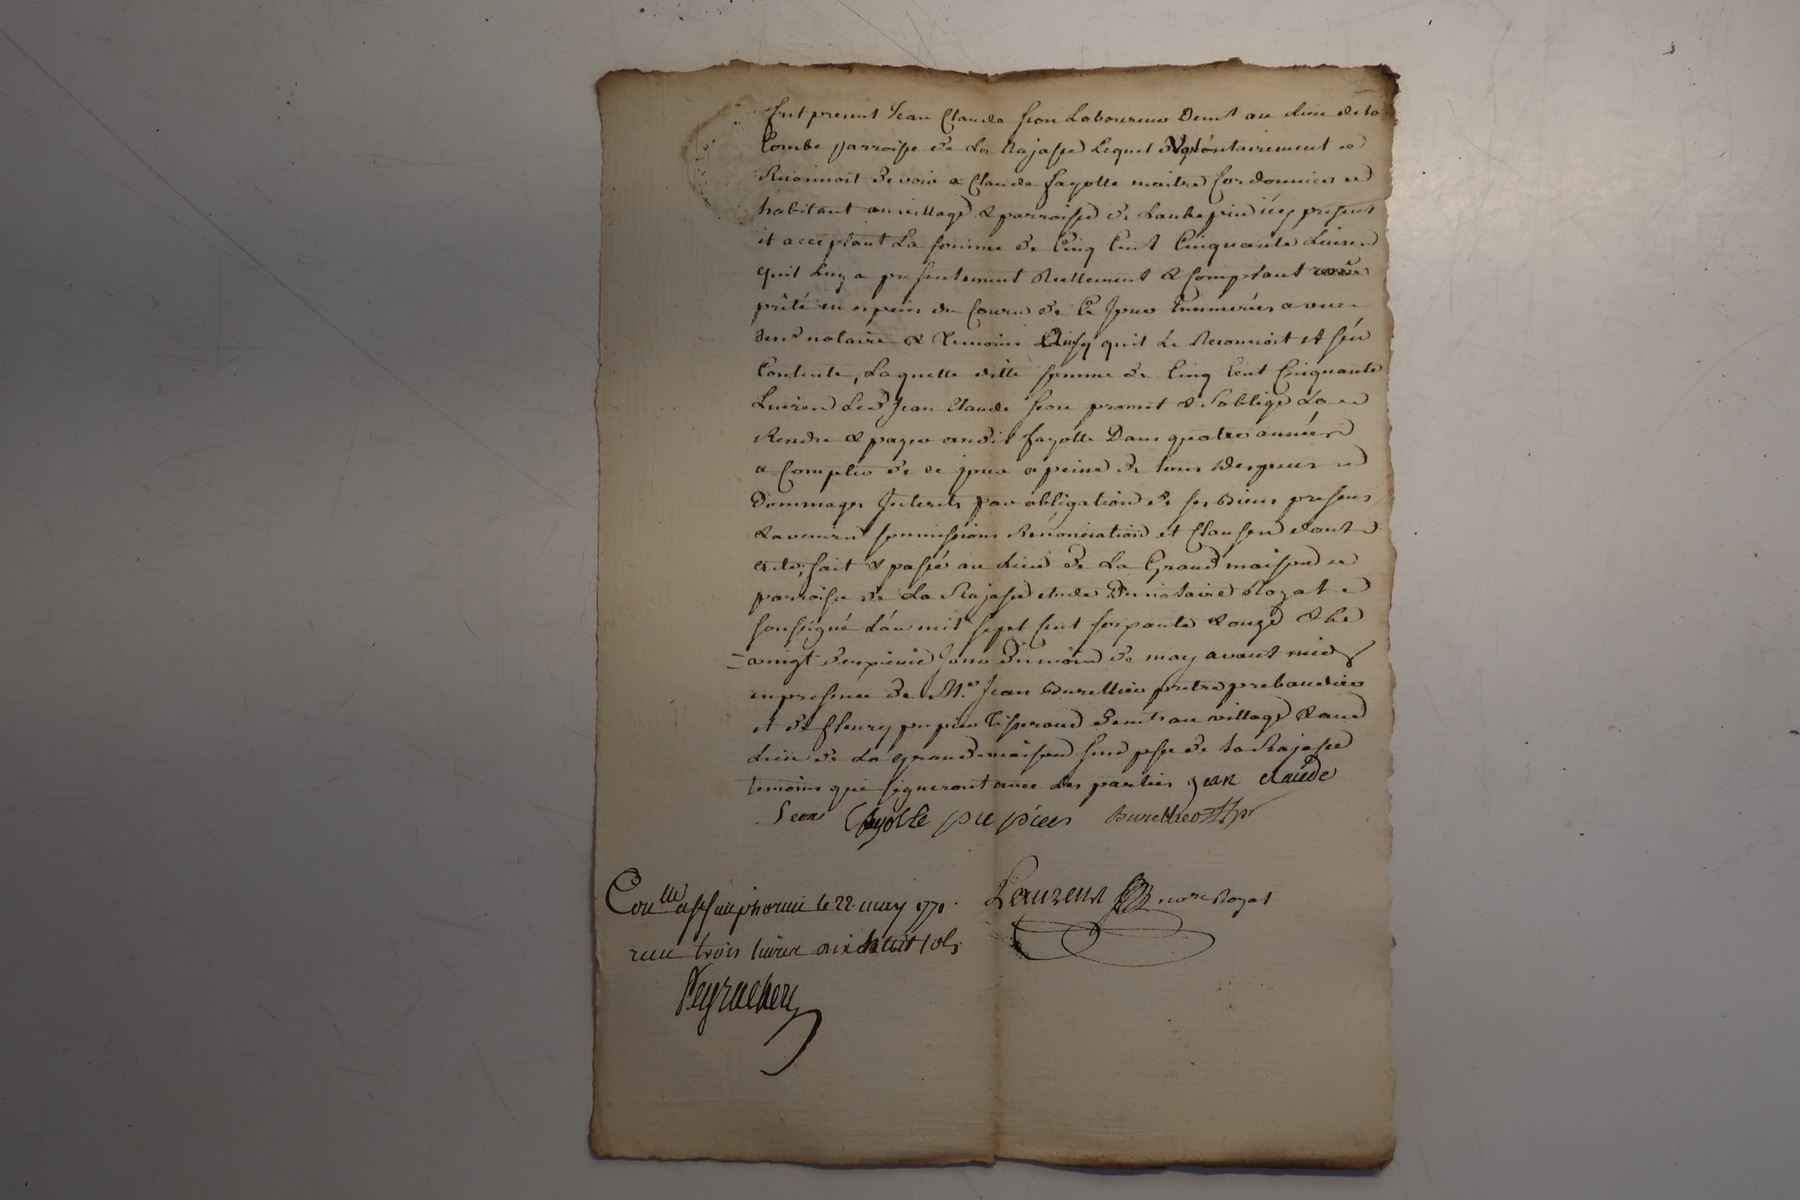 fut present Jean Claude Seon Laboureur Demt au Lieu de la
Combe parroisse de La Rajasse Lequel Volontairement
Reconnoit devoir a Claude fayolle maitre Cordonnier
habitant au village & parroisse de Laubepin icy present
et acceptant La somme de Cinq Cent Cinquante Livres
quil luy a presentement Reellement & Comptant
prêté en especes du Cours de Ce Jour Nombrées a vue
des notaire & temoins quil Le Reconnoit et sen
Contente, Laquelle ditte somme de Cinq Cent Cinquante
Livres Led Jean Claude Seon promet & soblige La
Rendre & payer audit fayolle Dans quatre années
a Compter de ce jour a peine de tous Despens
Dommages Interets par obligation de ses Biens presens
& avenir soumissions Rénonciation et Clauses dont
acte, fait & passé au Lieu de La Grand maison
parroisse de La Rajasse etude Du notaire Royal
soussigné L'an mil sept Cent soixante & onze & Le
vingt deuxieme Jour du mois de may avant midy
en presence de Mre Jean Burellier pretre prebandier
et de fleury pupier tisserand demts au village & aud
Lieu de La grand maison susd psse de La Rajasse
temoins qui signeront avec Les parties jean claude
Seon fayolle pupier Burellier ptr
Conlle a st simphorien le 22 may 1771. Laurent nore Royal
reçu trois livres dix huit sols
Peyrachery